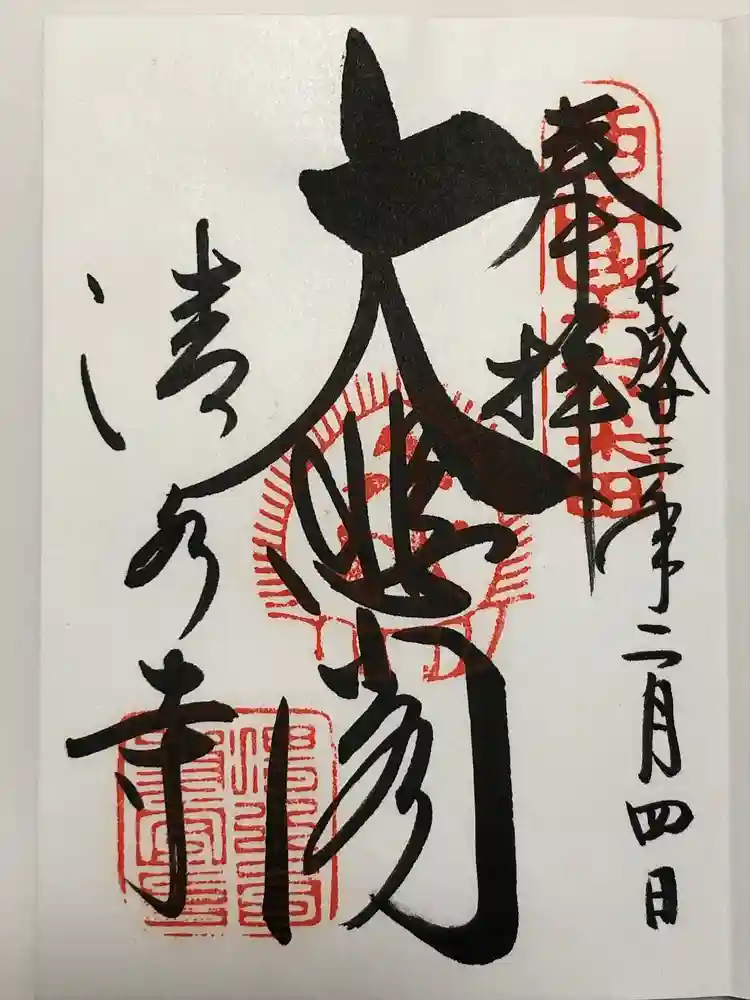 奉拝
平成廿三年二月四日
大悲閣
清水寺